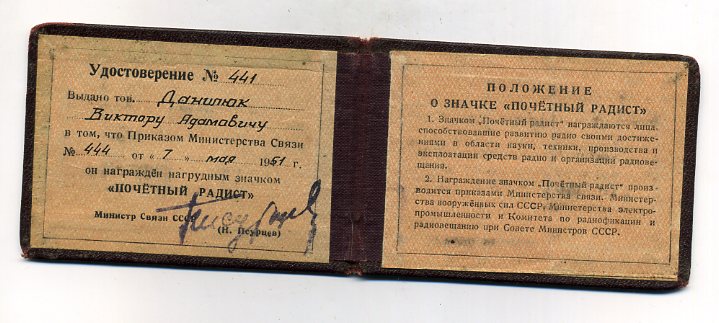 Удостоверение № 441
Выдано тов. Данилюк
Виктору Адамавичу
в том, что Приказом Министерства Связи
№ 444 от „ 7 „ мая 1951 г.
он награждён нагрудным значком
«ПОЧЁТНЫЙ РАДИСТ»
Министр Связи СССР
(Н. Псурцев)
ПОЛОЖЕНИЕ
О ЗНАЧКЕ «ПОЧЁТНЫЙ РАДИСТ»
1. Значком „Почётный радист" награждаются лица,
способствовавшие развитию радио своими достиже-
ниями в области науки, техники, производства и
эксплоатации средств радио и организации радиове-
щания.
2. Награждение значком „Почётный радист" произ-
водится приказами Министерства связи, Министер-
ства вооружённых сил СССР, Министерства электро-
промышленности и Комитета по радиофикации и
радиовещанию при Совете Министров СССР.